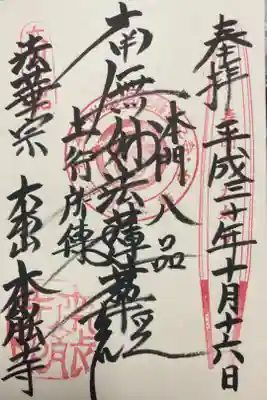 奉拝 平成三十年十月十六日
本門八品
南無妙法蓮華経
上行所傳
法華宗 大本山 本能寺